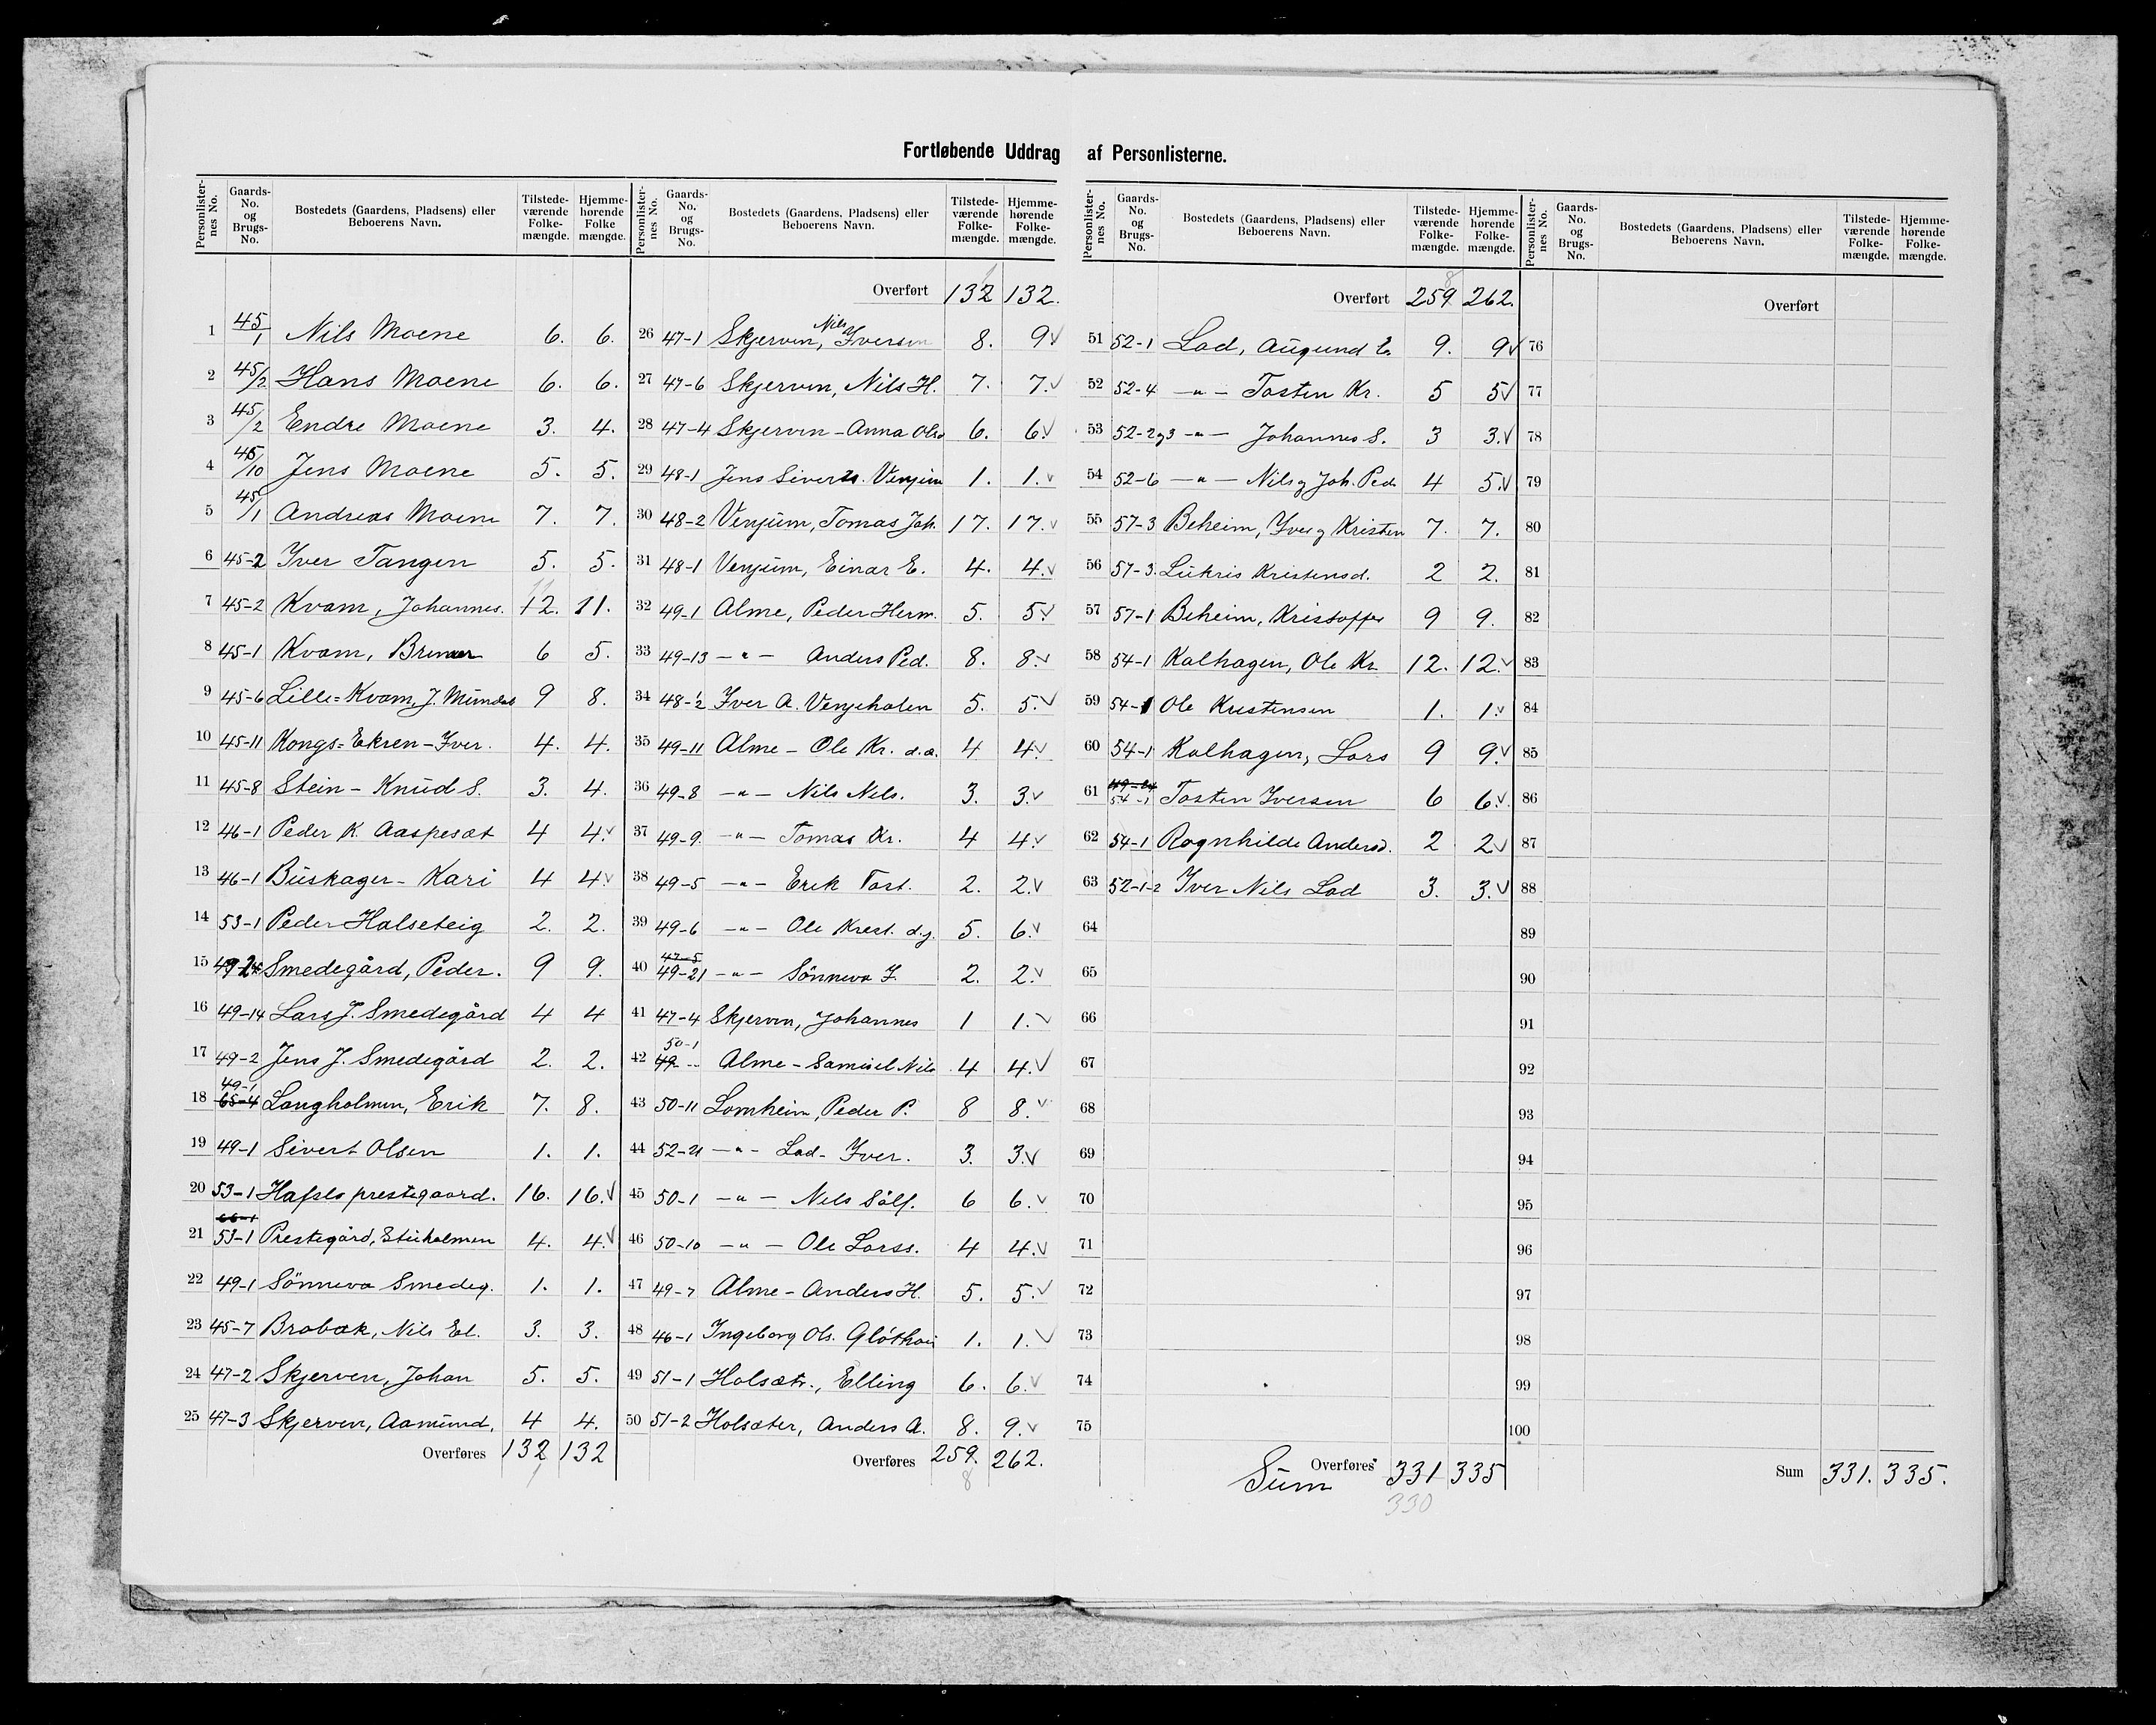 Fortløbende Uddrag af Personlisterne.
Personlister-nes No. Gaards-No. og Brugs-No. Bostedets (Gaardens, Pladsens) eller Beboerens Navn. Tilstede-værende Folke-mængde. Hjemme-hørende Folke mængde.
1 45/1 Nils Moene 6. 6.
2 45/2 Hans Moene 6. 6.
3 45/2 Endre Moene 3. 4.
4 45/10 Jens Moene 5. 5.
5 45/1 Andreas Moene 7. 7.
6 45-2 Iver Tangen 5. 5.
7 45-2 Kvam, Johannes. 12. 11 11.
8 45-1 Kvam, 6 5.
9 45-6 Lille-Kvam, J. Mundal 9 8.
10 45-11 Kongs-Ekren-Iver. 4. 4.
11 45-8 Stein - Knud S. 3. 4.
12 46-1 Peder K. Aaspesæt 4 4.
13 46-1 Buskager - Kari 4 4.
14 53-1 Peder Halseteig 2. 2.
15 49-24 Smedegård, Peder. 9 9.
16 49-14 Lars J. Smedegård 4 4
17 49-2 Jens J. Smedegård 2. 2.
18 65-4 49-1 Langholmen, Erik 7. 8.
19 49-1 Sivert Olsen 1. 1.
20 53-1 Hafslo prestegaard. 16. 16. √
21 66-1 53-1 Prestegård, 4. 4. √
22 49-1 Sönneva Smedeg. 1. 1.
23 45-7 Brobæk, Nils El. 3. 3.
24 47-2 Skjerven, Johan 5. 5.
25 47-3 Skjerven, Aamund. 4 4.
Overføres 132 132
1
Personlister-nes No. Gaards-No. og Brugs-No. Bostedets (Gaardens, Pladsens) eller Beboerens Navn. Tilstede-værende Folke-mængde. Hjemme-hørende Folke-mængde.
1
Overført 132 132.
26 47-1 Skjerven, Nils Iversen 8. 9 √
27 47-6 Skjerven, Nils H. 7. 7. √
28 47-4 Skjerven - Anna Olsd 6. 6. √
29 48-1 Jens Siverts. Venjum 1. 1. √
30 48-2 Venjum, Tomas Joh. 17. 17. √
31 48-1 Venjum, Einar E. 4. 4. √
32 49-1 Alme, Peder Herm. 5. 5. √
33 49-13 -"- Anders Ped. 8. 8. √
34 48-1/2 Iver A. Venjeholen 5. 5. √
35 49-11 Alme - Ole Kr. d.æ. 4 4. √
36 49-8 -"- Nils Nils. 3. 3. √
37 49-9. -"- Tomas Kr. 4 4. √
38 49-5 -"- Erik Tost. 2. 2. √
39 49-6 -"- Ole Krist. d.y. 5. 6. √
40 47-5 49-21 -"- Sönneva I. 2. 2. √
41 47-4 Skjerven, Johannes 1 1. √
42 50-1 49- Alme - Samuel Nils 4 4. √
43 50-11 Lomheim, Peder P. 8 8. √
44 52-21 -"- Lad - Iver. 3. 3. √
45 50-1 -"- Nils Sålf. 6 6. √
46 50-10 -"- Ole Larss. 4 4. √
47 49-7 Alme - Anders H. 5. 5. √
48 46-1 Ingeborg Ols. 1. 1. √
49 51-1 Holsætr., Elling 6. 6. √
50 51-2 Holsæter, Anders A. 8. 9. √
Overføres 259. 262.
8
Personlister-nes No. Gaards-No. og Brugs-No. Bostedets (Gaardens, Pladsens) eller Beboerens Navn. Tilstede-værende Folke-mængde. Hjemme-hørende Folke-mængde.
8
Overført 259 262.
51 52-1 Lad, Augund E. 9. 9 √
52 52-4 -"- Tosten Kr. 5 5 √
53 52-2 og 3 -"- Johannes S. 3 3. √
54 52-6 -"- Nils og Joh. Ped. 4 5. √
55 57-3 Beheim, Iver og Kristen 7. 7.
56 57-3. Lukris Kristensd. 2 2.
57 57-1 Beheim, Kristoffer 9 9.
58 54-1 Kalhagen, Ole Kr. 12. 12. √
59 54-1 Ole Kristensen 1. 1. √
60 54-1 Kalhagen, Lars 9 9. √
61 49-24 54-1 Tosten Iversen 6 6. √
62 54-1 Ragnhilde Andersd. 2 2 √
63 52-1-2 Iver Nils Lad 3. 3. √
64
65
66
67
68
69
70
71
72
73
74
75
Overføres Sum 331 335
330
Personlister-nes No. Gaards-No. og Brugs-No. Bostedets (Gaardens, Pladsens) eller Beboerens Navn. Tilstede-værende Folke-mængde. Hjemme-hørende Folke-mængde.
Overført
76
77
78
79
80
81
82
83
84
85
86
87
88
89
90
91
92
93
94
95
96
97
98
99
100
Sum 331. 335.